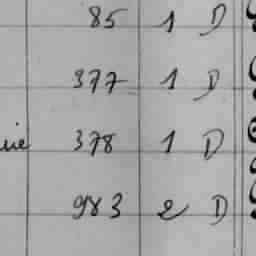 85 1 D
377 1 D
378 1 D
983 2 D